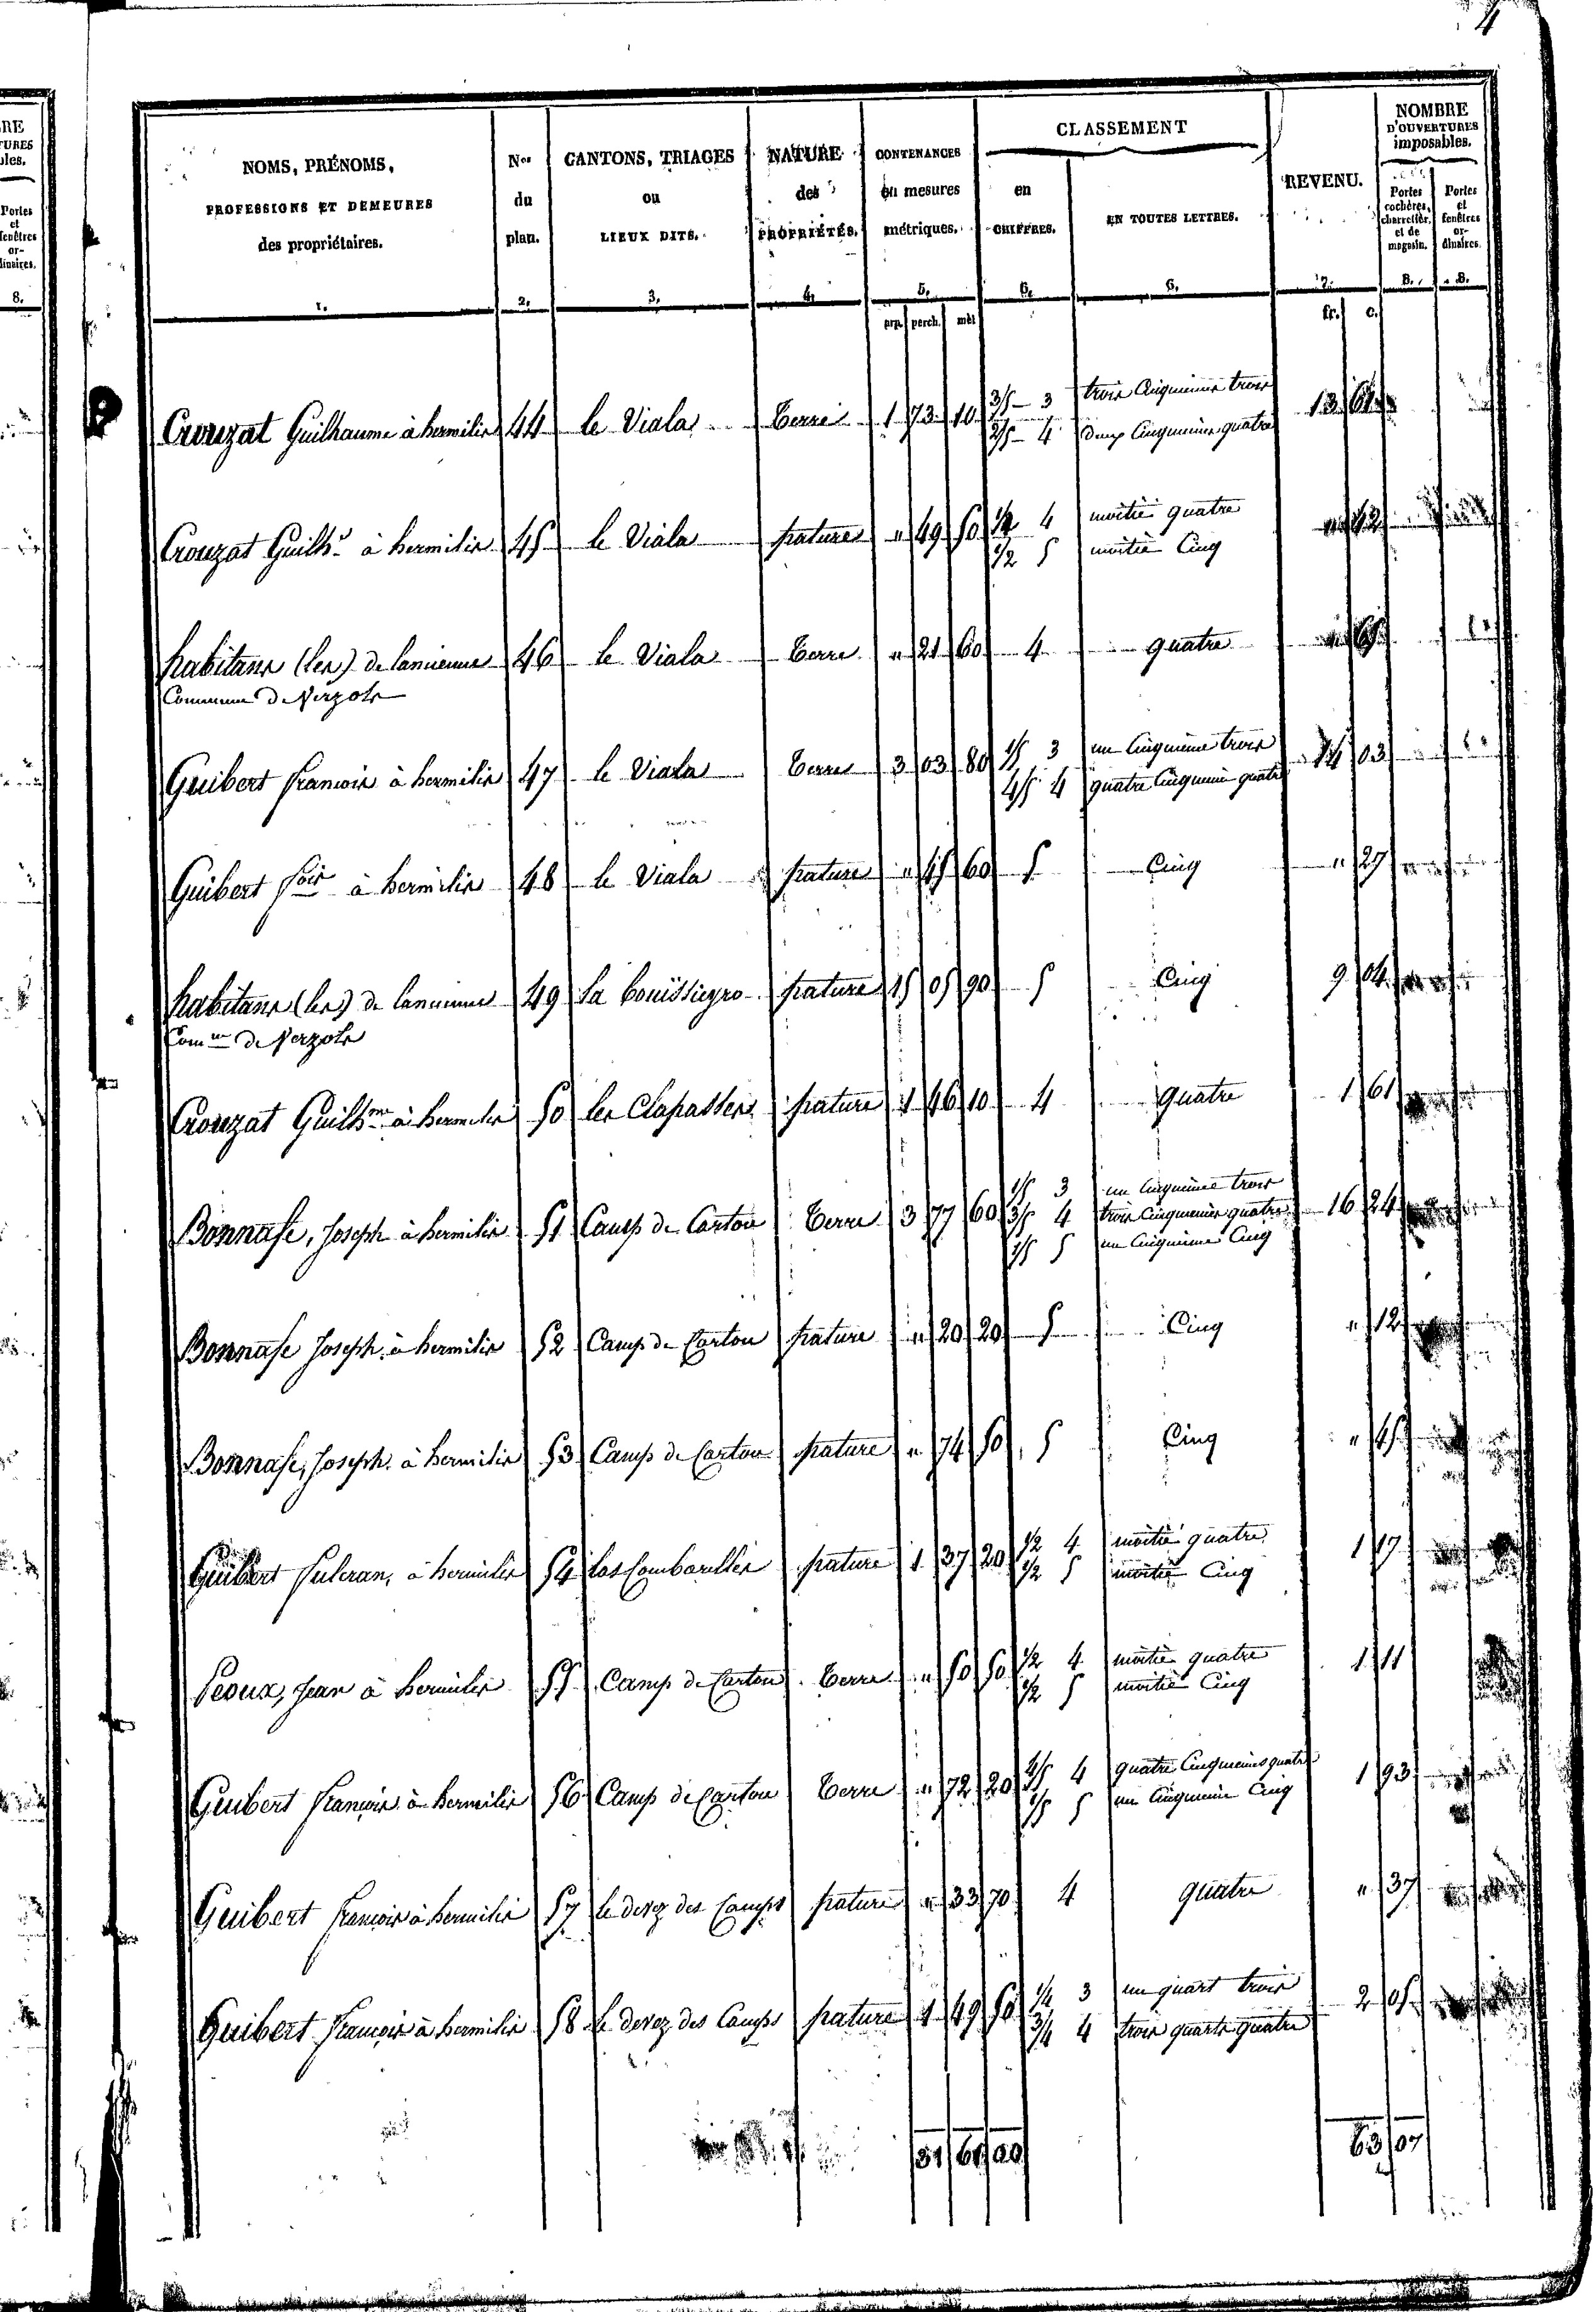 4
NOMS, PRÉNOMS,
PROFESSIONS ET DEMEURES
des propriétaires.
1.
Nos
du
plan.
2.
CANTONS, TRIAGES
ou
LIEUX DITS.
3.
NATURE
des
PROPRIÉTÉS.
4.
CONTENANCES
en mesures
métriques.
5.
arp. perch. mèt
CLASSEMENT
en
CHIFFRES.
6.
EN TOUTES LETTRES.
6.
REVENU.
7.
fr. c.
NOMBRE
D'OUVERTURES
imposables.
Portes
cochères,
charretièr.
et de
magasin.
8.
Portes
et
fenêtres
or-
dinaires.
8.
Crouzat Guilhaume à hermilis 44 le Viala Terre 1 73 10 3/5 3 trois Cinquiemes trois 13 61
2/5 4 deux Cinquiemes quatre
Crouzat Guilhe à hermilis 45 le Viala pature " 49 50 1/2 4 moitié quatre " 42
1/2 5 moitié Cinq
habitans (les) de lancienne 46 le Viala Terre " 21 60 4 quatre "
Commune de Nerzols
Guibert francois à hermilis 47 le Viala Terre 3 03 80 1/5 3 un Cinquieme trois 14 03
4/5 4 quatre Cinquiemes quatre
Guibert fois à hermilis 48 le Viala pature " 45 60 5 Cinq " 27
habitans (les) de lancienne 49 la bouïssieyro pature 15 05 90 5 Cinq 9 04
Comune de Nerzols
Crouzat Guilhme à hermilis 50 les Clapasses pature 1 46 10 4 quatre 1 61
Bonnafe, Joseph à hermilis 51 Camp de Carton Terre 3 77 60 1/5 3 un Cinquieme trois 16 24
3/5 4 trois Cinquiemes quatre
1/5 5 un Cinquieme Cinq
Bonnafe Joseph à hermilis 52 Camp de Carton pature " 20 20 5 Cinq " 12
Bonnafe, Joseph à hermilis 53 Camp de Carton pature " 74 50 5 Cinq " 45
Guibert fulcran, à hermilis 54 las Combarelles pature 1 37 20 1/2 4 moitié quatre 1 17
1/2 5 moitié Cinq
Jean à hermilis 55 Camp de Carton Terre " 50 50 1/2 4 moitié quatre 1 11
1/2 5 moitié Cinq
Guibert françois à hermilis 56 Camp de Carton Terre " 72 20 4/5 4 quatre Cinquiemes quatre 1 93
1/5 5 un Cinquieme Cinq
Guibert francois à hermilis 57 le devez des Camps pature " 33 70 4 quatre " 37
Guibert françois à hermilis 58 le devez des Camps pature 1 49 50 1/4 3 un quart trois 2 05
3/4 4 trois quarts quatre
31 61 00 63 07